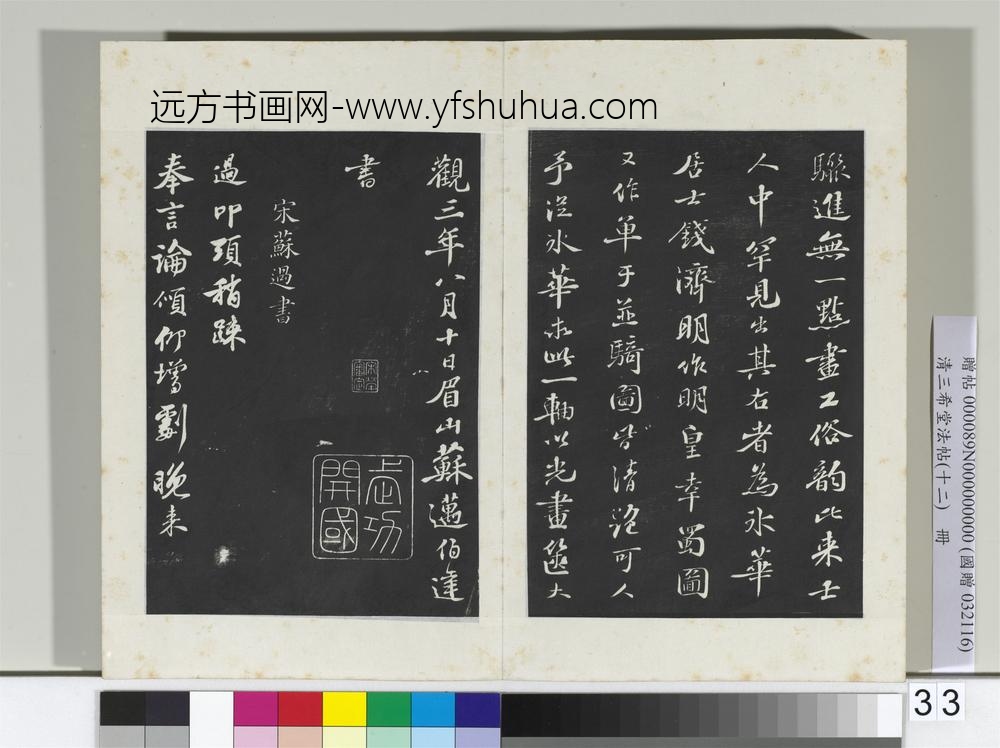 远方书画网-www.yfshuhua.com
驟進無一點畫工俗韵比来士
人中罕見出其右者為氷華
居士錢濟明作明皇幸蜀圖
又作單于並騎圖皆清可人
予從氷華求此一軸以光畫篋大
觀三年八月十日眉山蘇邁伯達
書
武功開國
宋蘇過書
過叩頭稍踈
奉言論傾仰增劇晚来
贈帖 000089N000000000 (國贈 032116)
清三希堂法帖(十二) 冊
33